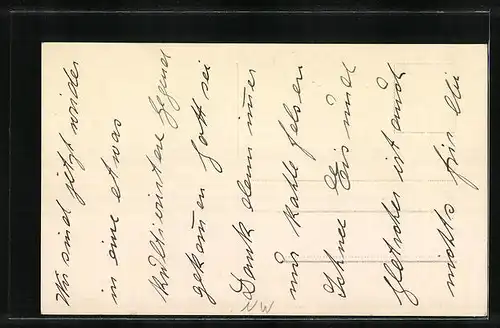 Wir sind jetzt wieder
in eine etwas
kultiviertere Gegend
gekom̄en Gott sei
Dank denn im̄er
nur kahle Felsen
Schnee Eis und
Gletscher ist auch
nichts für die